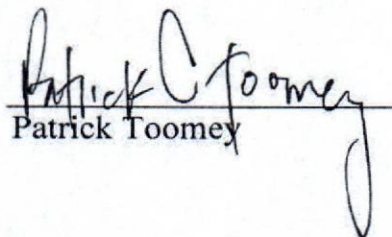 Patrick C Toomey
Patrick Toomey